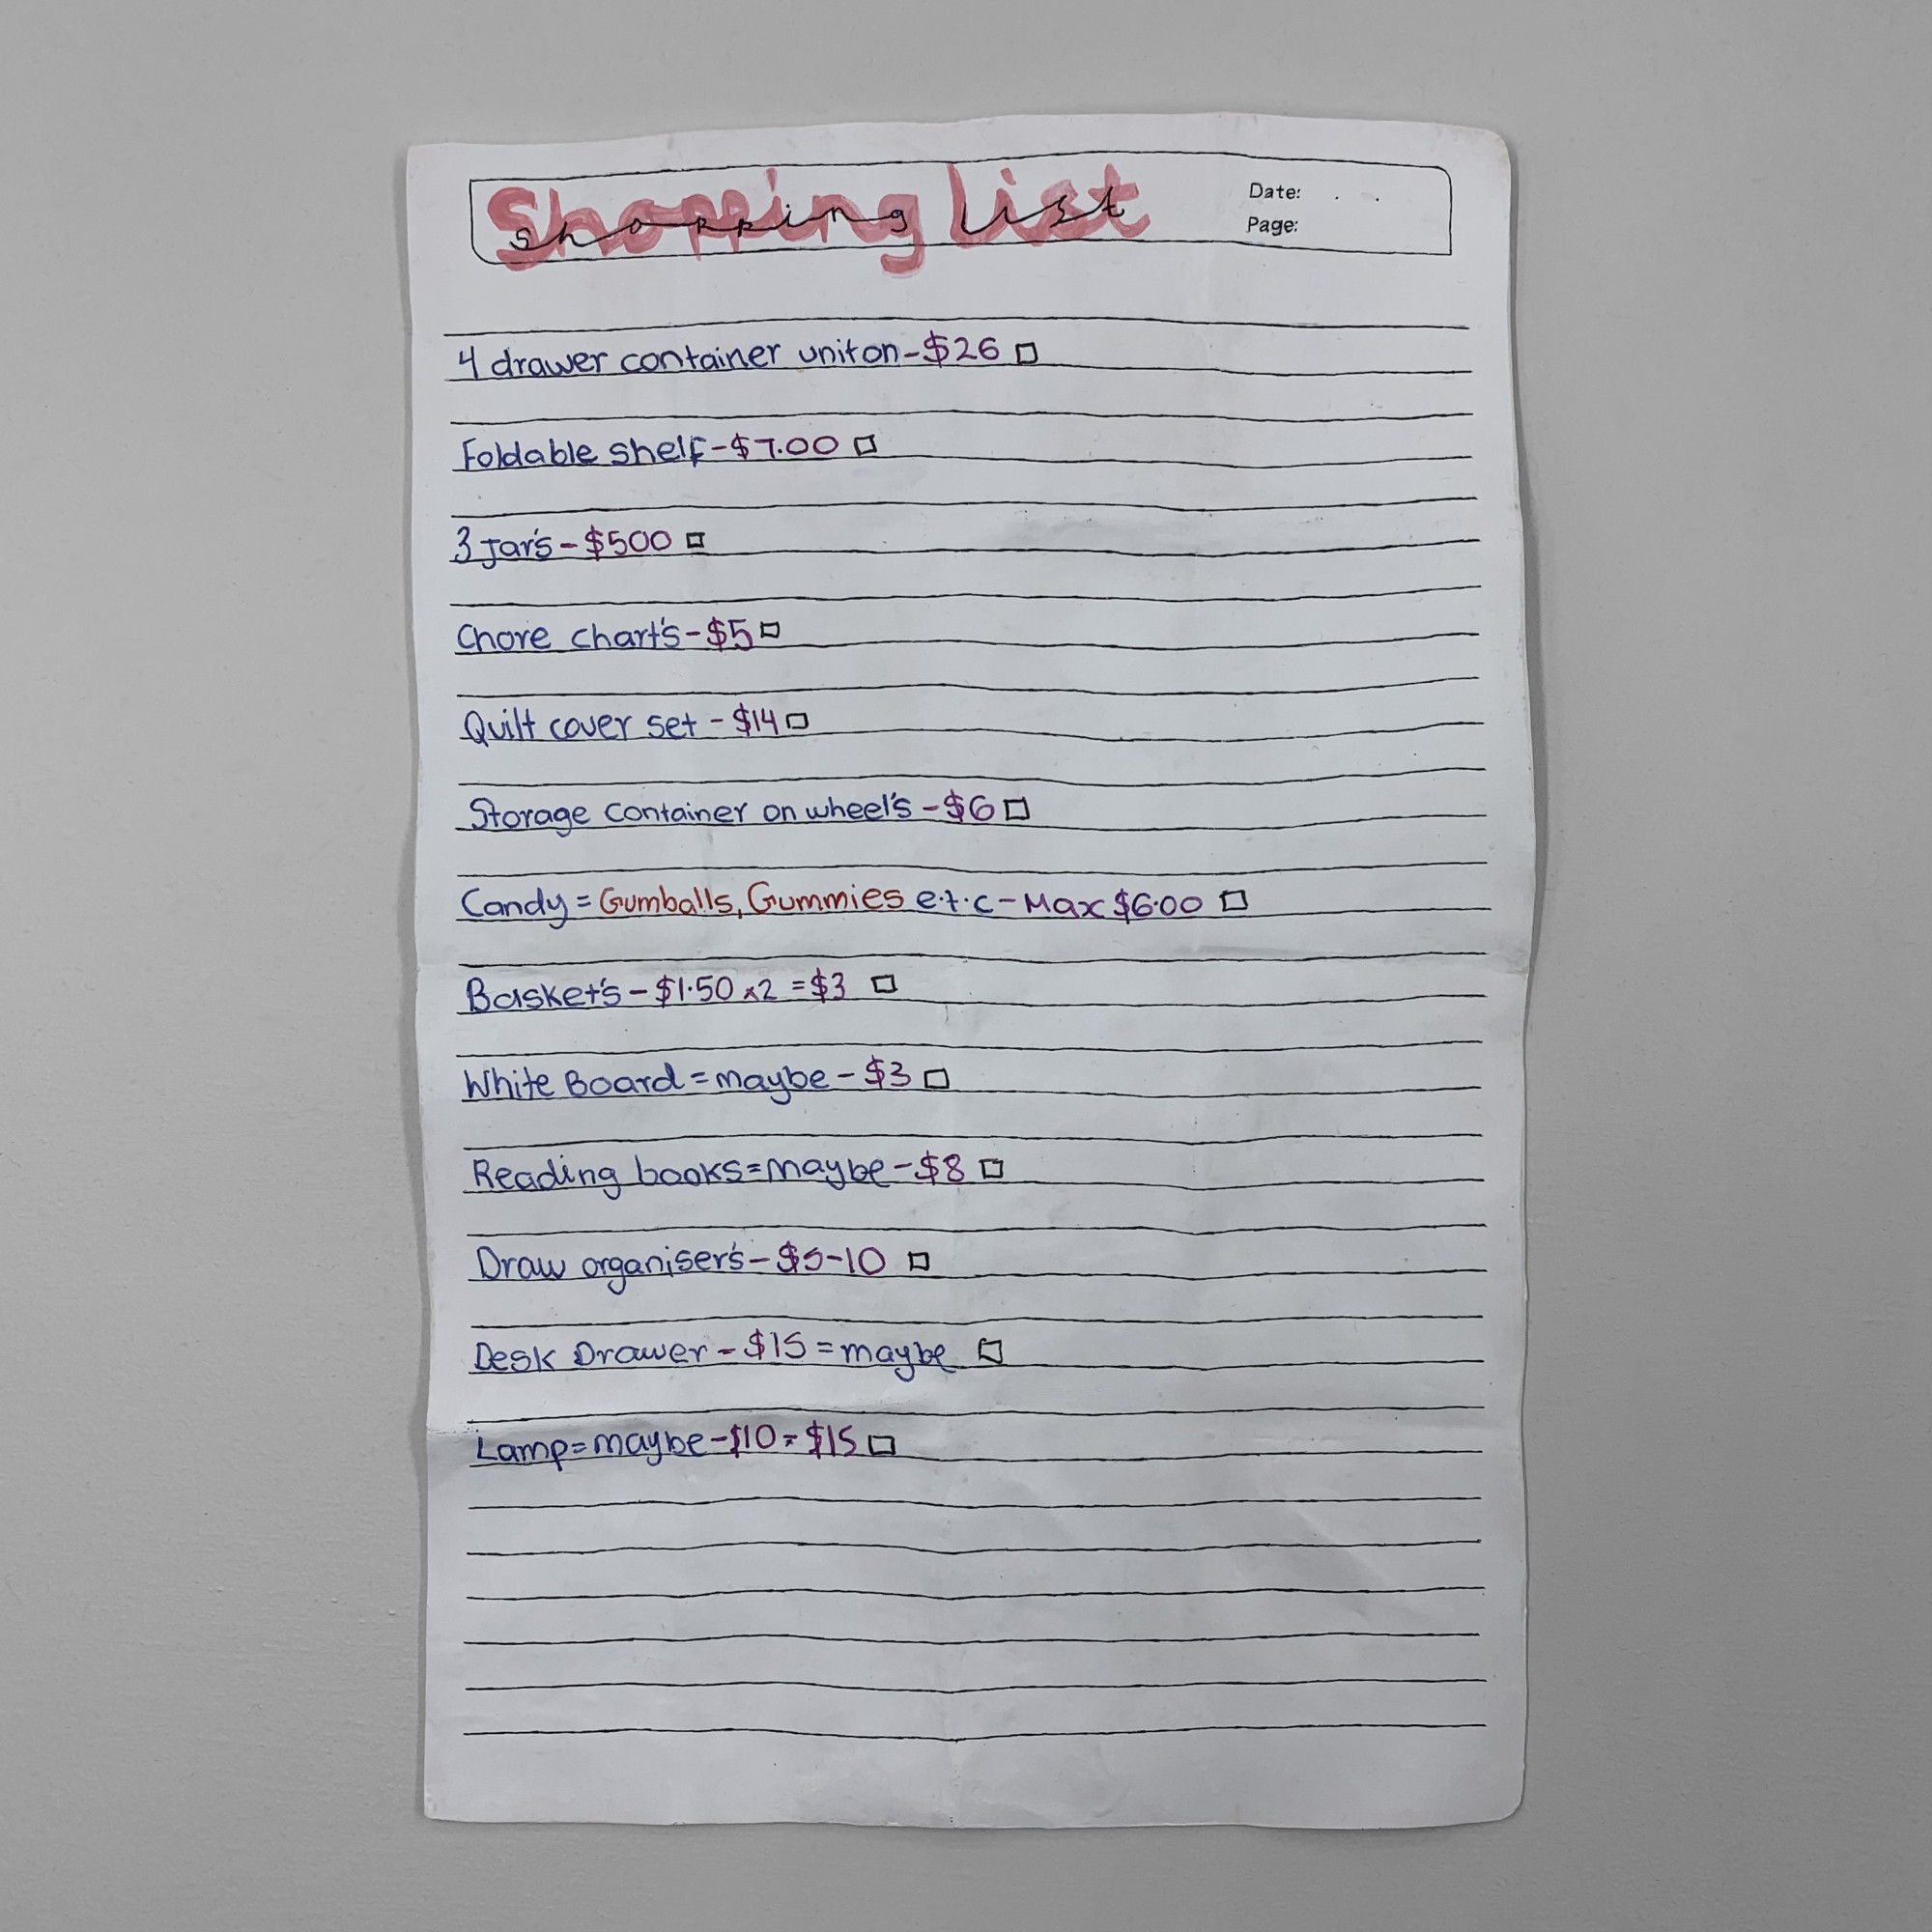 Shopping List
Date:
Page:
4 drawer container unit on - $26
Foldable shelf - $7.00
3 Jar's - $500
Chore chart's - $5
Quilt cover set - $14
Storage container on wheel's - $6
Candy = Gumballs, Gummies e.t.c - Max $6.00
Basket's - $1.50 x2 = $3
White Board = maybe - $3
Reading books = maybe - $8
Draw organiser's - $5-10
Desk Drawer - $15 = maybe
Lamp = maybe - $10 = $15